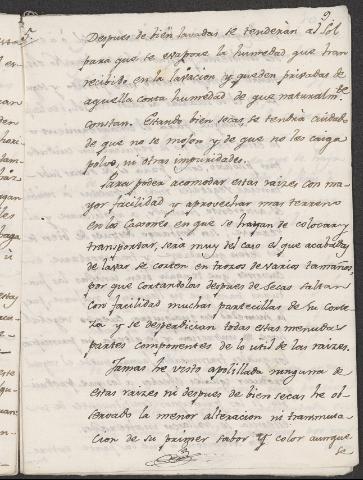 5. 9
Despues de bien lavadas se tenderàn al Sòl
para que se evapore la humedad que han
recibido en la lavacion y queden privadas de
aquella corta humedad de que naturalm.te
constan. Estando bien secas, se tendrà cuidado
de que no se mojen y de que no les caiga
polvo, ni otras impuridades.
Para poder acomodar estas raizes con ma-
yor facilidad y aprovechar mas terreno
en los Caxones en que se hayan de colocar y
transportar, serà muy del caso el que acabadas
de lavar se corten en trozos de varios tamaños,
por que cortandolas despues de secas saltan
con facilidad muchas partecillas de su corte-
za y se desperdician todas estas menudas
partes componentes de lo util de las raizes.
Jamas he visto apolillada ninguna de
estas raizes ni despues de bien secas he ob-
servado la menor alteracion ni transmuta-
cion de su primer sabor y color aunque
se